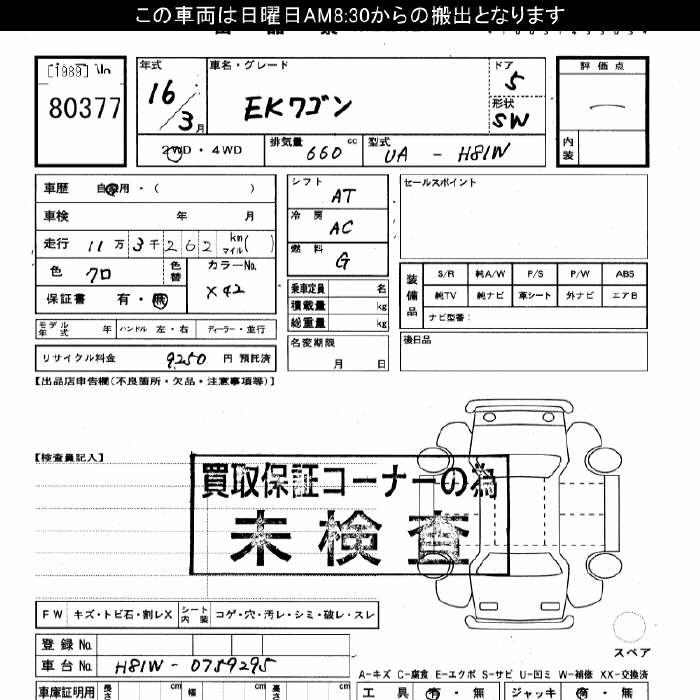 この車両は日曜日AM8:30からの搬出となります
[1989] In
80377
年式
16
3月
車名・グレード
EKワゴン
ドア
5
形状
SW
評価点
内装
2WD・4WD
排気量 660 cc
型式 UA - H81W
車歴 自家用・( )
車検 年 月
走行 11万3千262 km マイル( )
色 クロ
色替
カラーNo.
X42
保証書 有・無
モデル年式 年 ハンドル 左・右 ディーラー・並行
リサイクル料金 9250 円 預託済
シフト AT
冷房 AC
燃料 G
乗車定員 名
積載量 kg
総重量 kg
名変期限
月 日
セールスポイント
装備品
S/R 純A/W P/S P/W ABS
純TV 純ナビ 革シート 外ナビ エアB
ナビ型番:
後日品
【出品店申告欄(不良箇所・欠品・注意事項等)】
【検査員記入】
買取保証コーナーの為
未検査
FW キズ・トビ石・割レX シート内装 コゲ・穴・汚レ・シミ・破レ・スレ
スペア
登録No.
車台No. H81W - 0759295
A-キズ C-腐食 E-エクボ S-サビ U-凹ミ W-補修 XX-交換済
車庫証明用 長さ cm 幅 cm 高さ cm
工具 有・無 ジャッキ 有・無